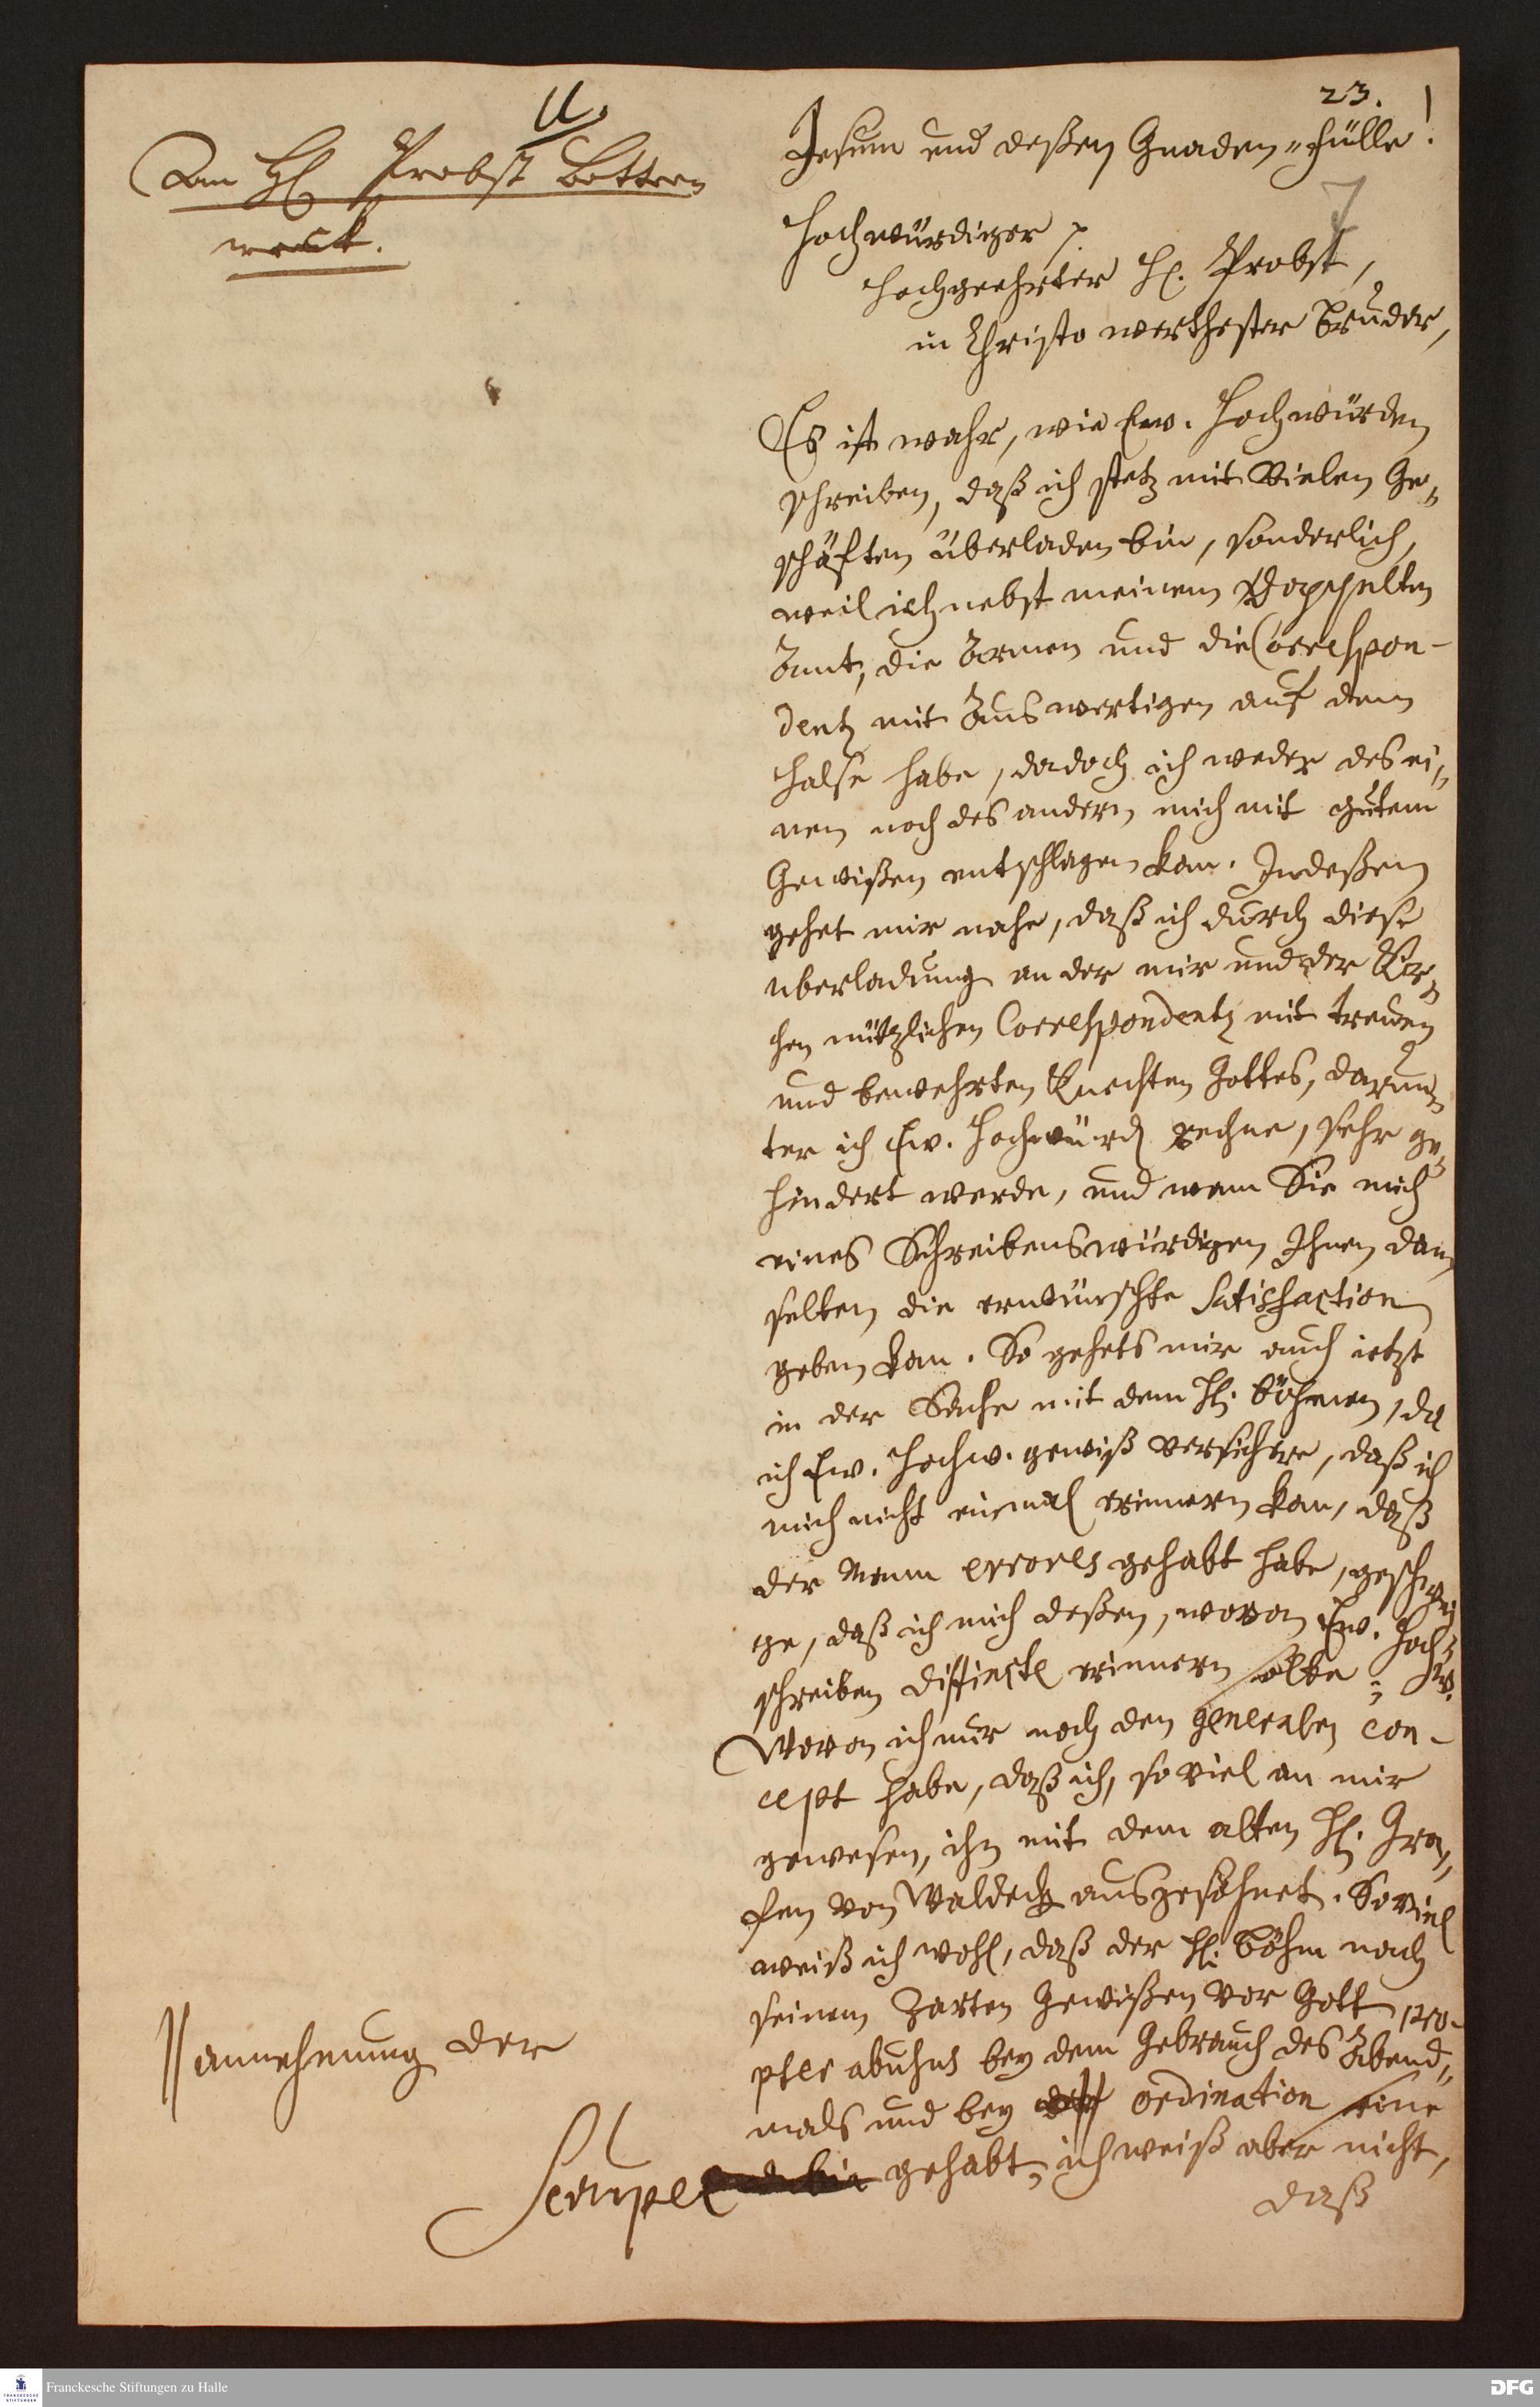 23.
11.
An H. Probst Botterweck.
Jesum und deßen Gnaden-Fülle!
7
Hochwürdiger p.
Hochgeehrter H. Probst,
in Christo werthester Bruder,
Es ist wahr, wie Ew. Hochwürden
schreiben, daß ich stetz mit vielen Ge-
schäften überladen bin, sonderlich,
weil ich nebst meinem doppelten
Amt, die Armen und die Correspon-
dentz mit Auswertigen auf dem
Halse habe, da doch ich weder des ei-
nen noch des andern mich mit gutem
Gewißen entschlagen kan. Indeßen
gehet mir nahe, daß ich durch diese
uberladung an der mir und der Kir-
chen nützlichen Correspondentz mit treuen
und bewehrten Knechten Gottes, darun-
ter ich Ew. Hochwürd. rechne, sehr ge-
hindert werde, und wann Sie mich
eines Schreibens würdigen, Ihnen dan
selten die erwünschte Satisfaction
geben kan. So gehets mir auch ietzt
in der Sache mit dem H. Böhmen, da
ich Ew. Hochw. gewiß versichere, daß ich
mich nicht einmal erinnern kan, daß
der Mann errores gehabt habe, geschwei
ge, daß ich mich deßen, wovon Ew. Hoch-
w.
schreiben distincte erinnern solte;
Wovon ich nur noch den generalen con-
cept habe, daß ich, so viel an mir
gewesen, ihn mit dem alten H. Gra-
fen von Waldeck ausgesöhnet. So viel
weiß ich wohl, daß der H. Böhm nach
seinem zarten Gewißen vor Gott pro-
pter abusus bey dem Gebrauch des Abend-
mals und bey ordination eine
|| annehmung der
Scrupel gehabt; ich weiß aber nicht,
daß
Franckesche Stiftungen zu Halle
DFG